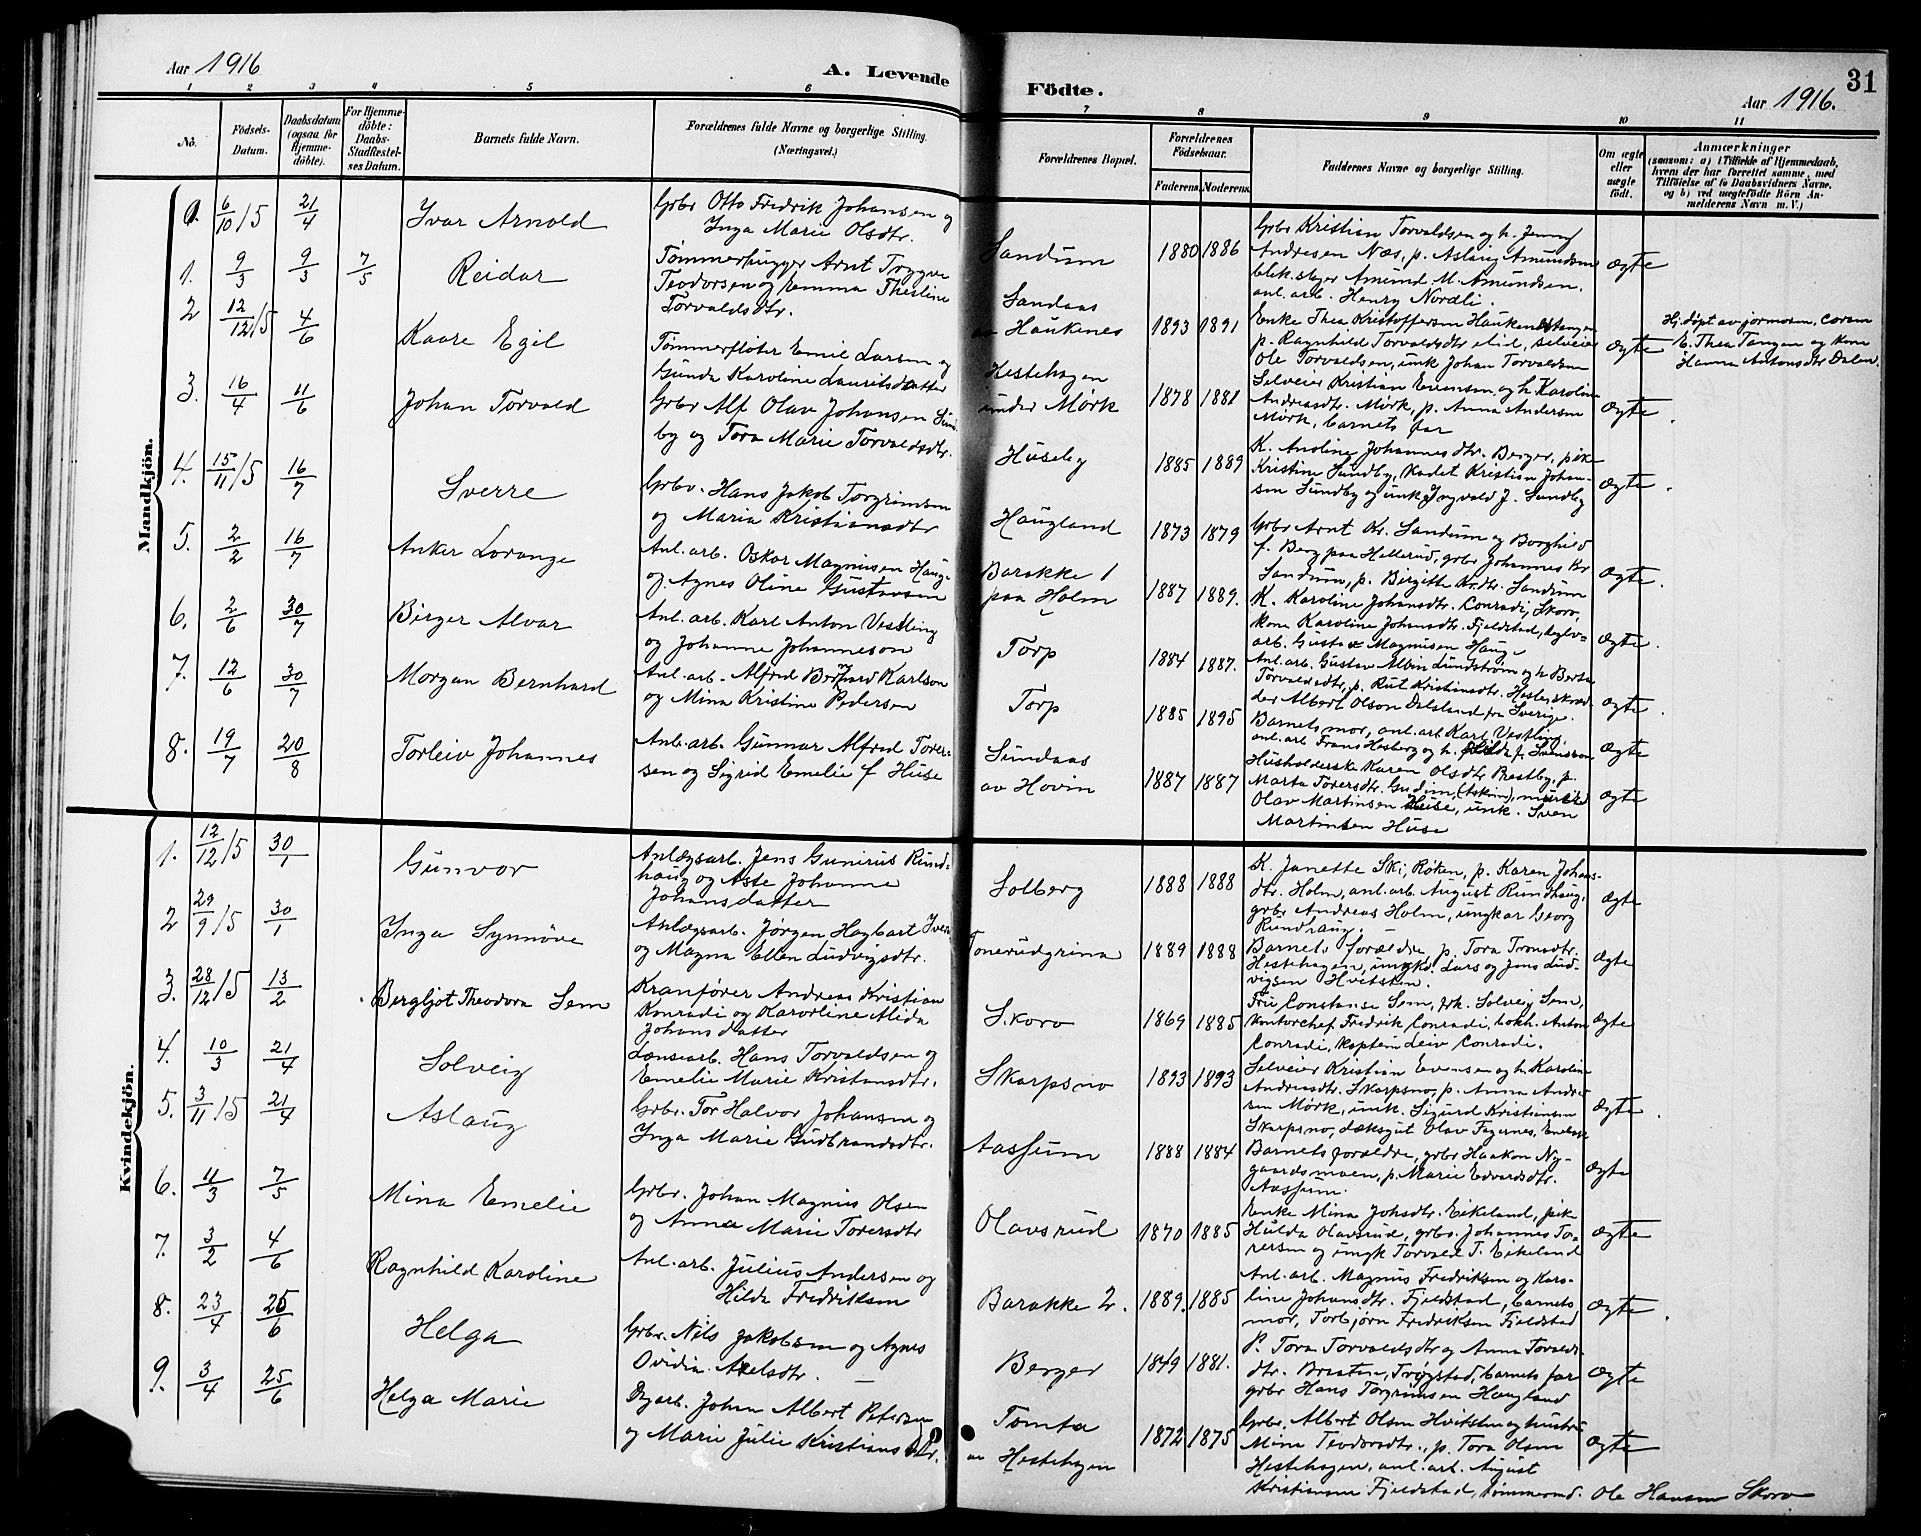 Aar 1916
A. Levende
1 2 3 4 5 6
No.
Fødsels-
Datum.
Daabsdatum
(ogsaa for
Hjemme-
døbte).
For Hjemme-
døbte:
Daabs-
Stadfæstel-
ses Datum.
Barnets fulde Navn.
Forældrenes fulde Navne og borgerlige Stilling.
(Næringsvei.)
Mandkjön.
0. 6/10/5 21/4 Ivar Arnold
Grbr Otto Fredrik Johansen og
Inga Marie Olsdtr.
1. 9/3 9/3 7/5 Reidar
Tømmerhugger Arnt Trygve
Teodorsen og Emma Thesline
Torvaldsdtr.
2 12/12/5 4/6 Kaare Egil
Tømmerfløter Emil Larsen og
Gunda Karoline Lauritsdatter
3. 16/4 11/6 Johan Torvald
Grbr Alf Olav Johansen Sund-
by og Tora Marie Torvaldsdtr.
4. 15/11/5 16/7 Sverre
Grbr. Hans Jakob Torgrimsen
og Maria Kristiansdtr
5. 2/2 16/7 Anker Lorange
Anl. arb. Oskar Magnusen Haug-
og Agnes Oline Gustavsen
6. 2/6 30/7 Birger Alvar
Anl. arb. Karl Anton Vestling
og Johanne Johanneson
7. 12/6 30/7 Morgan Bernhard
Anl. arb. Alfred Bernhard Karlson
og Mina Kristine Pedersen
8. 19/7 20/8 Torleiv Johannes
Anl. arb. Gunnar Alfred Torer-
sen og Sigrid Emelie f. Huse
Kvindekjön.
1. 12/12/5 30/1 Gunvor
Anlægsarb. Jens Gunerius Rund-
haug og Aste Johanne
Johansdatter
2 29/9/5 30/1 Inga Synnöve
Anlægsarb. Jørgen Hagbart Iver
og Magna Ellen Ludvigsdtr.
3. 28/12/5 13/2 Bergljot Theodora Sem
Kranfører Andreas Kristian
Konradi og Karoline Alida
Johansdatter
4. 10/3 21/4 Solveig
Lensearb. Hans Torvaldsen og
Emelie Marie Kristansdtr.
5. 3/11/5 21/4 Aslaug
Grbr. Tor Halvor Johansen og
Inga Marie Gudbrandsdtr.
6. 11/3 7/5 Mina Emelie
Grbr. Johan Magnus Olsen
og Anna Marie Torersdtr
7. 3/2 4/6 Ragnhild Karoline
Anl. arb. Julius Andersen og
Hilda Fredriksen
8. 23/4 25/6 Helga
Grbr. Nils Jakobsen og Agnes
Ovidia Axelsdtr.
9. 3/4 25/6 Helga Marie
Dgarb. Johan Albert Petersen
og Marie Julie Kristiansdtr.
Födte.
Aar 1916.
31
7 8 9 10 11
Forældrenes Bopæl.
Forældrenes
Fødselsaar.
Faderens. Moderens.
Faddernes Navne og borgerlige Stilling.
Om ægte
eller
uægte
født.
Anmærkninger
(saasom: a) i Tilfælde af Hjemmedaab,
hvem der har forrettet samme, med
Tilføielse af to Daabsvidners Navne,
og b) ved uegtefødte Börn An-
melderens Navn m. V.)
Sandum 1880 1886
Grbr Kristian Torvaldsen og h. Jenny
Andresen Næs, p. Aslaug Amundsen
blek.slager Amund M. Amundsen.
anl. arb. Henry Nordli.
ægte
Sandaas
av Haukenes 1893 1891
Enke Thea Kristoffersen Haukenestangen
p. Ragnhild Torvaldsdtr Lid, selveier
Ole Torvaldsen, unk Johan Torvaldsen
ægte
Hj. døpt av jormoren, Coram
E. Thea Tangen og kone
Hanna Antonsdtr Dalen.
Hestehagen
under Mørk 1878 1881
Selveier Kristian Evensen og h. Karoline
Andreasdtr. Mørk, p. Anna Andersen
Mørk, barnets far
ægte.
Huseby 1885 1889
K. Anoline Johannesdtr. Berger, pike
Kristine Sundby, Kadet Kristian Johan-
sen Sundby og unk Ingvald J. Sundby
ægte.
Haugland 1873 1879
Grbr Arnt Kr. Sandum og Borghild
f. Berg paa Hellerud, grbr Johannes Kr
Sandum, p. Birgitte Kr.dtr. Sandum
ægte.
Barakke 1
paa Holm 1887 1889.
K. Karoline Johansdtr. Conradi, Skoro,
kone Karoline Johansdtr. Fjeldstad,
arb. Gustav Magnusen Haug
ægte.
Torp 1884 1887.
Anl. arb. Gustav Albin Lundstrøm og h Berta
Torvaldsdtr, p. Rut Kristiansdtr. Hesleskræd-
der Albert Olson Dalsland fra Sverige.
ægte.
Torp 1885 1895
Barnets mor, anl. arb Karl Vestling,
anl. arb Frans Hesberg og h. Hilda f. Svensson
ægte
Sundaas
av Hovin 1887 1887
Husholderske Karen Olsdtr Rostby, p.
Marta Torersdtr. Gudim, (Askim), murer
Olav Martinsen Huse, unk. Sven
Martinsen Huse
ægte
Solberg 1888 1888
K. Janette Ski, Røken, p. Karen Johans-
dtr. Holm, anl. arb. August Rundhaug,
grbr Andreas Holm, ungkar Georg
Rundhaug.
ægte
Tonerudgrina 1889 1888
Barnets forældre, p. Tora Tronsdtr.
Hestehagen, ungkd. Lars og Jens Lud-
vigsen Hvitsten.
ægte
Skoro 1869 1885
Fru Constanse Sem, frk. Solveig Sem,
kontorchef Fredrik Conradi, bokh. Anton
Conradi, kaptein Leiv Conradi.
ægte
Skarpsno 1893 1893
Selveier Kristian Evensen og h Karoline
Andreasdtr. Skarpsno, p. Anna Andre-
sen Mørk, unk. Sigurd Kristiansen
Skarpsno, dæksgut Olav Fagernes, Enebak
ægte.
Aassum 1888 1884
Barnets forældre, grbr Haakon Ny-
gaardsmoen, p. Marie Edvardsdtr.
Aassum.
ægte
Olavsrud 1870 1885
Enke Mina Johsdtr. Eikeland, pik
Hulda Olavsrud, grbr. Johannes To-
rersen og ungk Torvald T. Eikeland
ægte
Barakke 2. 1889. 1885
Anl. arb. Magnus Fredriksen og Karo-
line Johansdtr. Fjeldstad, barnets
mor, Torbjørn Fredriksen Fjeldstad
ægte.
Berger 1849 1881.
P. Tora Torvaldsdtr og Anna Torvalds-
dtr. Braaten, Trøgstad, barnets far
grbr Hans Torgrimsen Haugland
ægte
Tomta
av Hestehagen 1872 1875
Grbr. Albert Olsen Hvitsten og hustru
Mina Teodorsdtr., p. Tora Olsen
Hestehagen, anl. arb. August
Kristiansen Fjeldstad, tømmermd. Ole Hansen Skoro
ægte